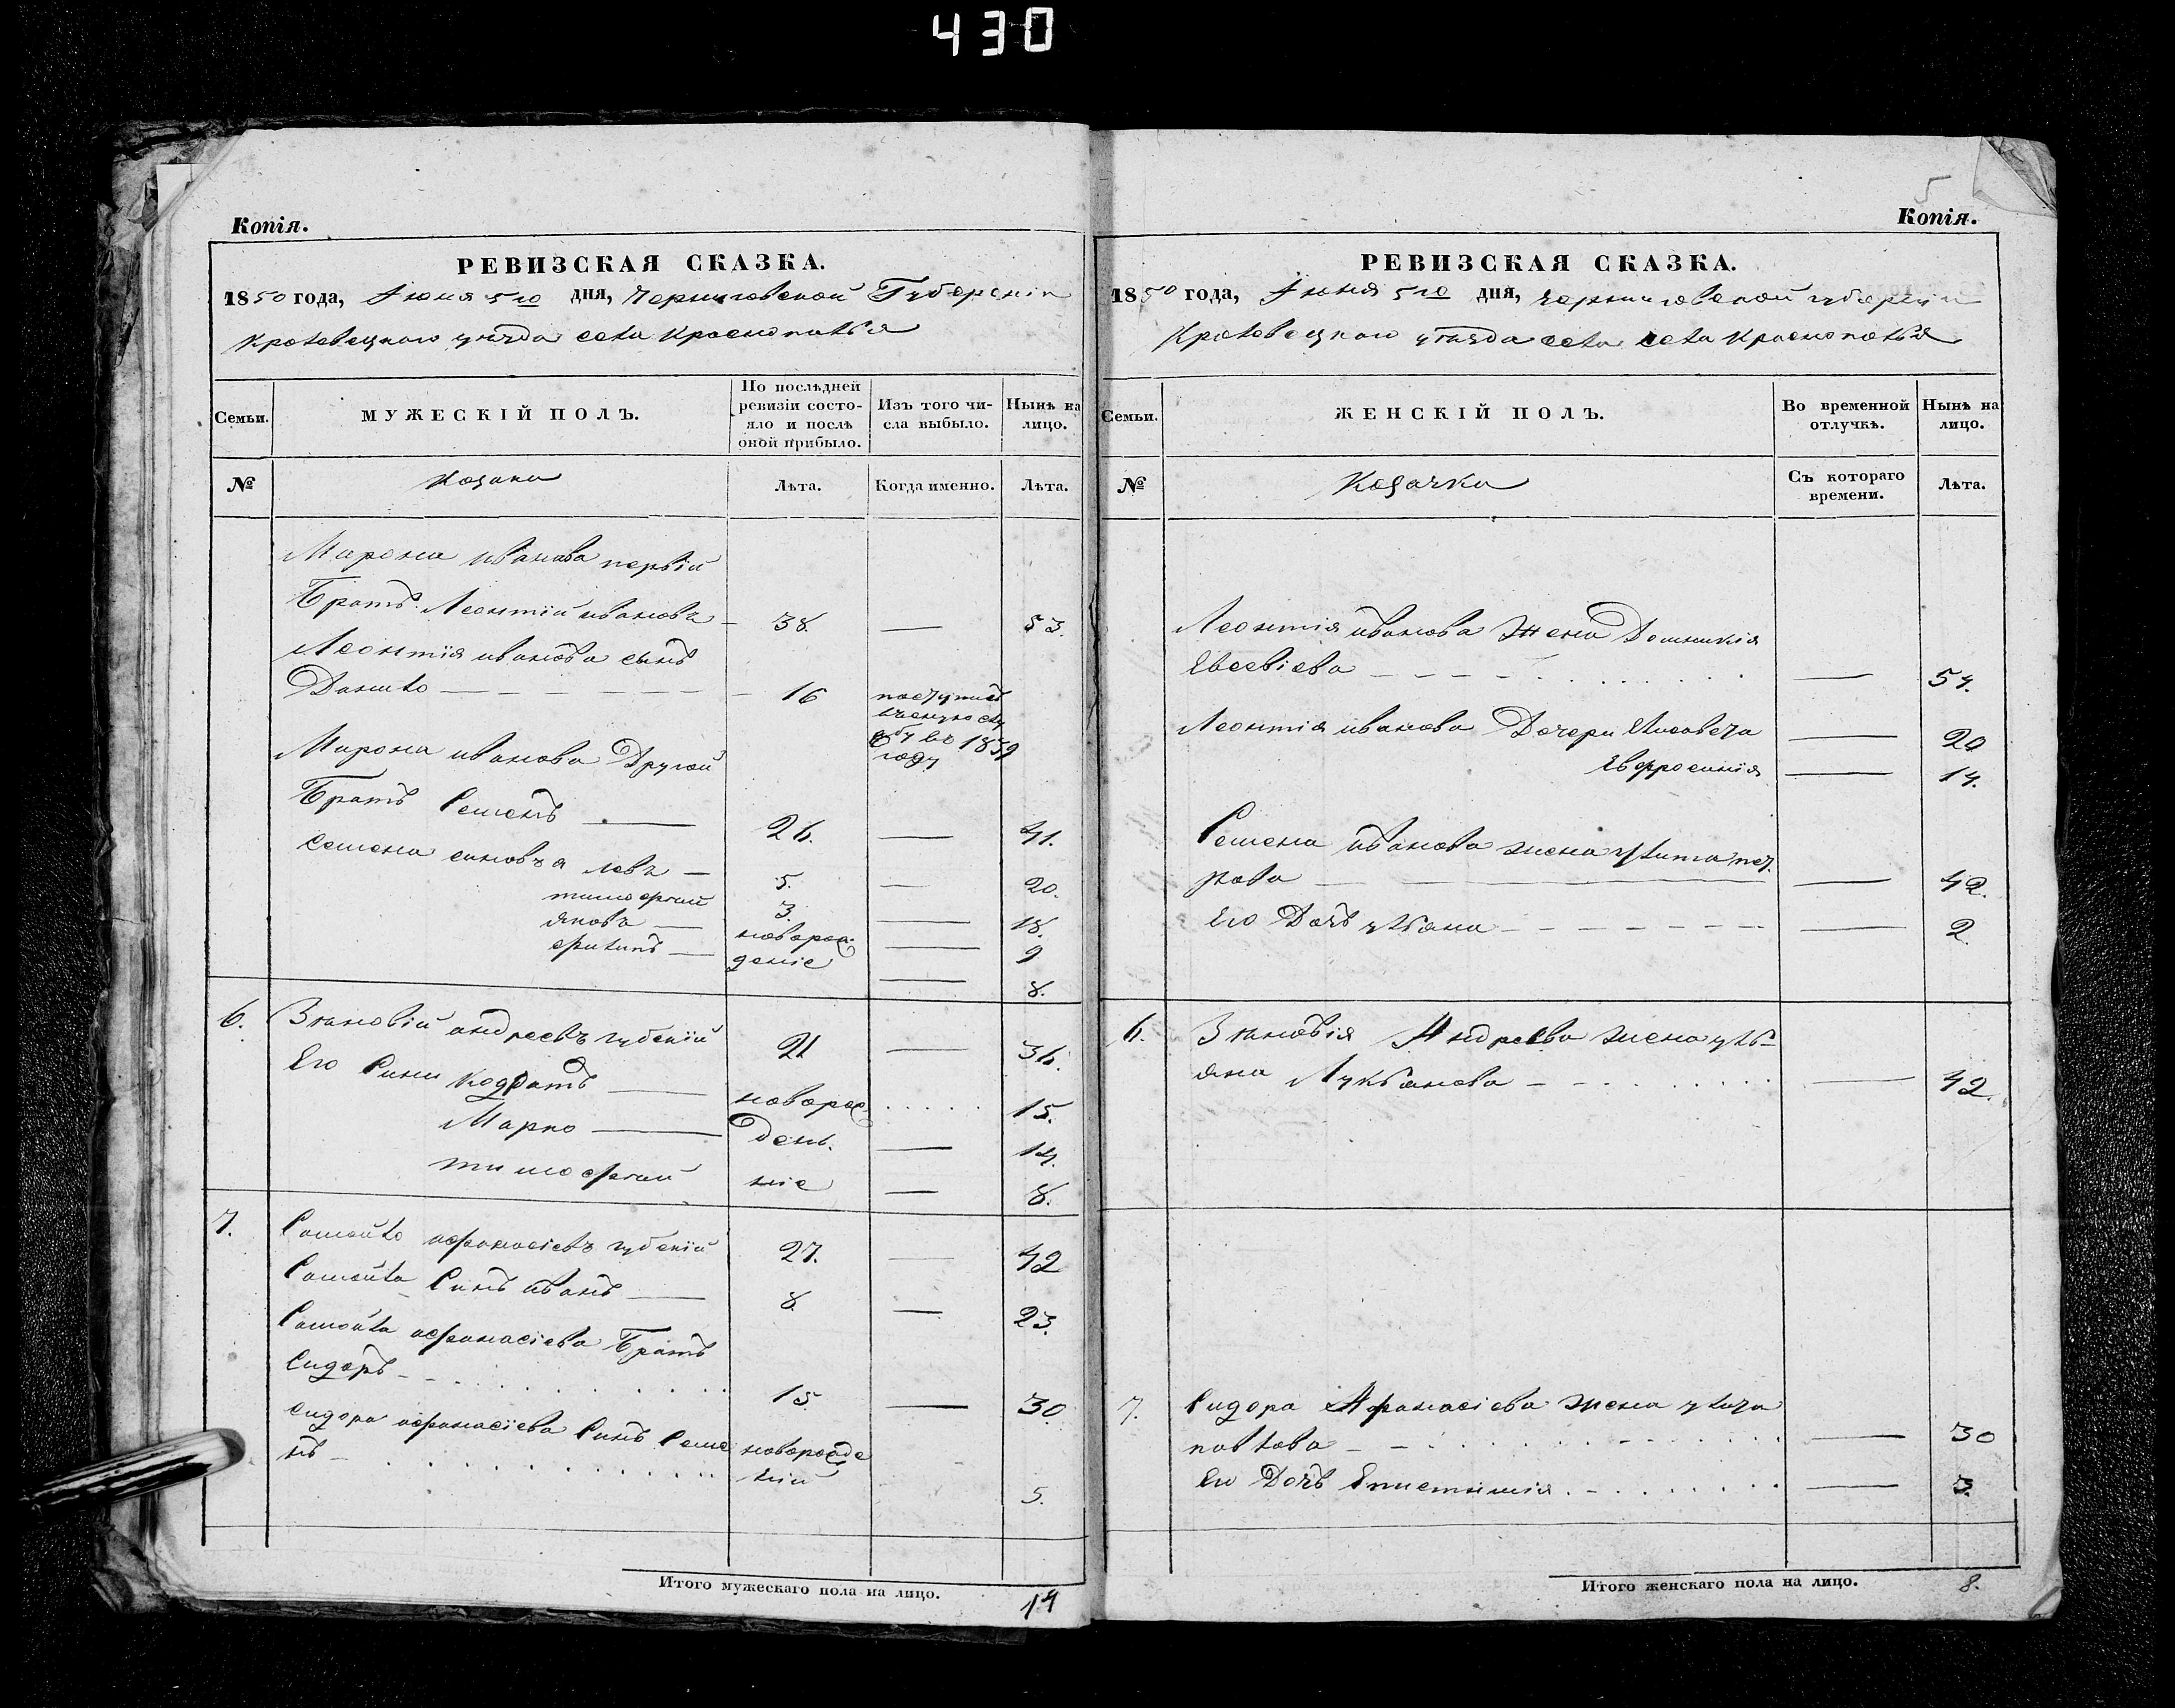 430
Копія.
РЕВИЗСКАЯ СКАЗКА.
1850 года, Июня 5го дня, Черниговской Губерніи
Кролевецкаго уезда села Краснополья
Семьи.
МУЖЕСКІЙ ПОЛЪ.
По послѣдней
ревизіи состо-
яло и послѣ
оной прибыло.
Изъ того чи-
сла выбыло.
Нынѣ на
лицо.
№
Козаки
Лѣта.
Когда именно.
Лѣта.
Мирона иванова первій
Братъ Леонтій ивановъ — 38. — 53.
Леонтія иванова сынъ
Данило — 16 поступилъ
службу въ 1839
году
Мирона иванова Другой
Братъ Семенъ — 26. — 41.
Семена синовъя левъ — 5. — 20.
тимофей 3. — 18.
яковъ — новорож — 9
филипъ — деніе — 8.
6. Зѣновій андреевъ губскій 21 — 36.
Его Сини Кодратъ — новорож 15.
Марко — ден. — 14.
тимофей ніе — 8.
7. Самойло афанасіевъ губскій 27. — 42
Самойла Синъ иванъ — 8 — 23.
Самойла афанасіева Братъ
Сидоръ 15. — 30
сидора афанасіева Синъ Семе новорожде
нъ ній 5.
Итого мужескаго пола на лицо. 14
5
Копія.
РЕВИЗСКАЯ СКАЗКА.
1850 года, Июня 5го дня, Черниговской губерніи
Кролевецкаго уезда села села Краснополья
Семьи.
ЖЕНСКІЙ ПОЛЪ.
Во временной
отлучкѣ.
Нынѣ на
лицо.
№
Козачки
Съ котораго
времени.
Лѣта.
Леонтія иванова жена Домникія
Евсевіева — 54.
Леонтія иванова Дочери Елисавета — 20
Евфросинія — 14.
Семена иванова жена улита пет
рова — 42.
Его Дочь ульяна — 2.
6. Зѣновія Андреева жена уль-
яна Лукьянова — 42.
7. Сидора Афанасіева жена улита
павлова — 30
Его Дочь Епистимія — 3.
Итого женскаго пола на лицо. 8.